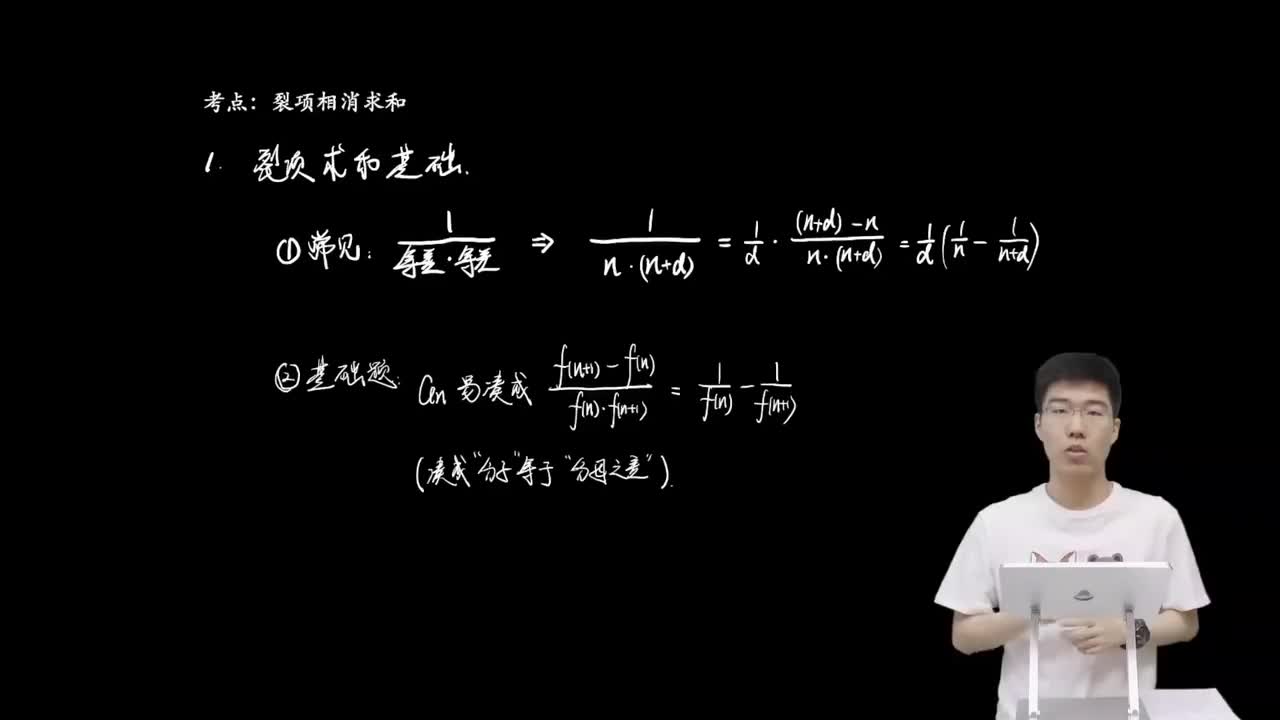 考点：裂项相消求和
1. 裂项求和基础.
①常见：1/(等差·等差) ⇒ 1/(n·(n+d)) = 1/d · ((n+d)-n)/(n·(n+d)) = 1/d(1/n - 1/(n+d))
②基础题：an 易凑成 (f(n+1)-f(n))/(f(n)·f(n+1)) = 1/f(n) - 1/f(n+1)
(凑成"分子"等于"分母之差").